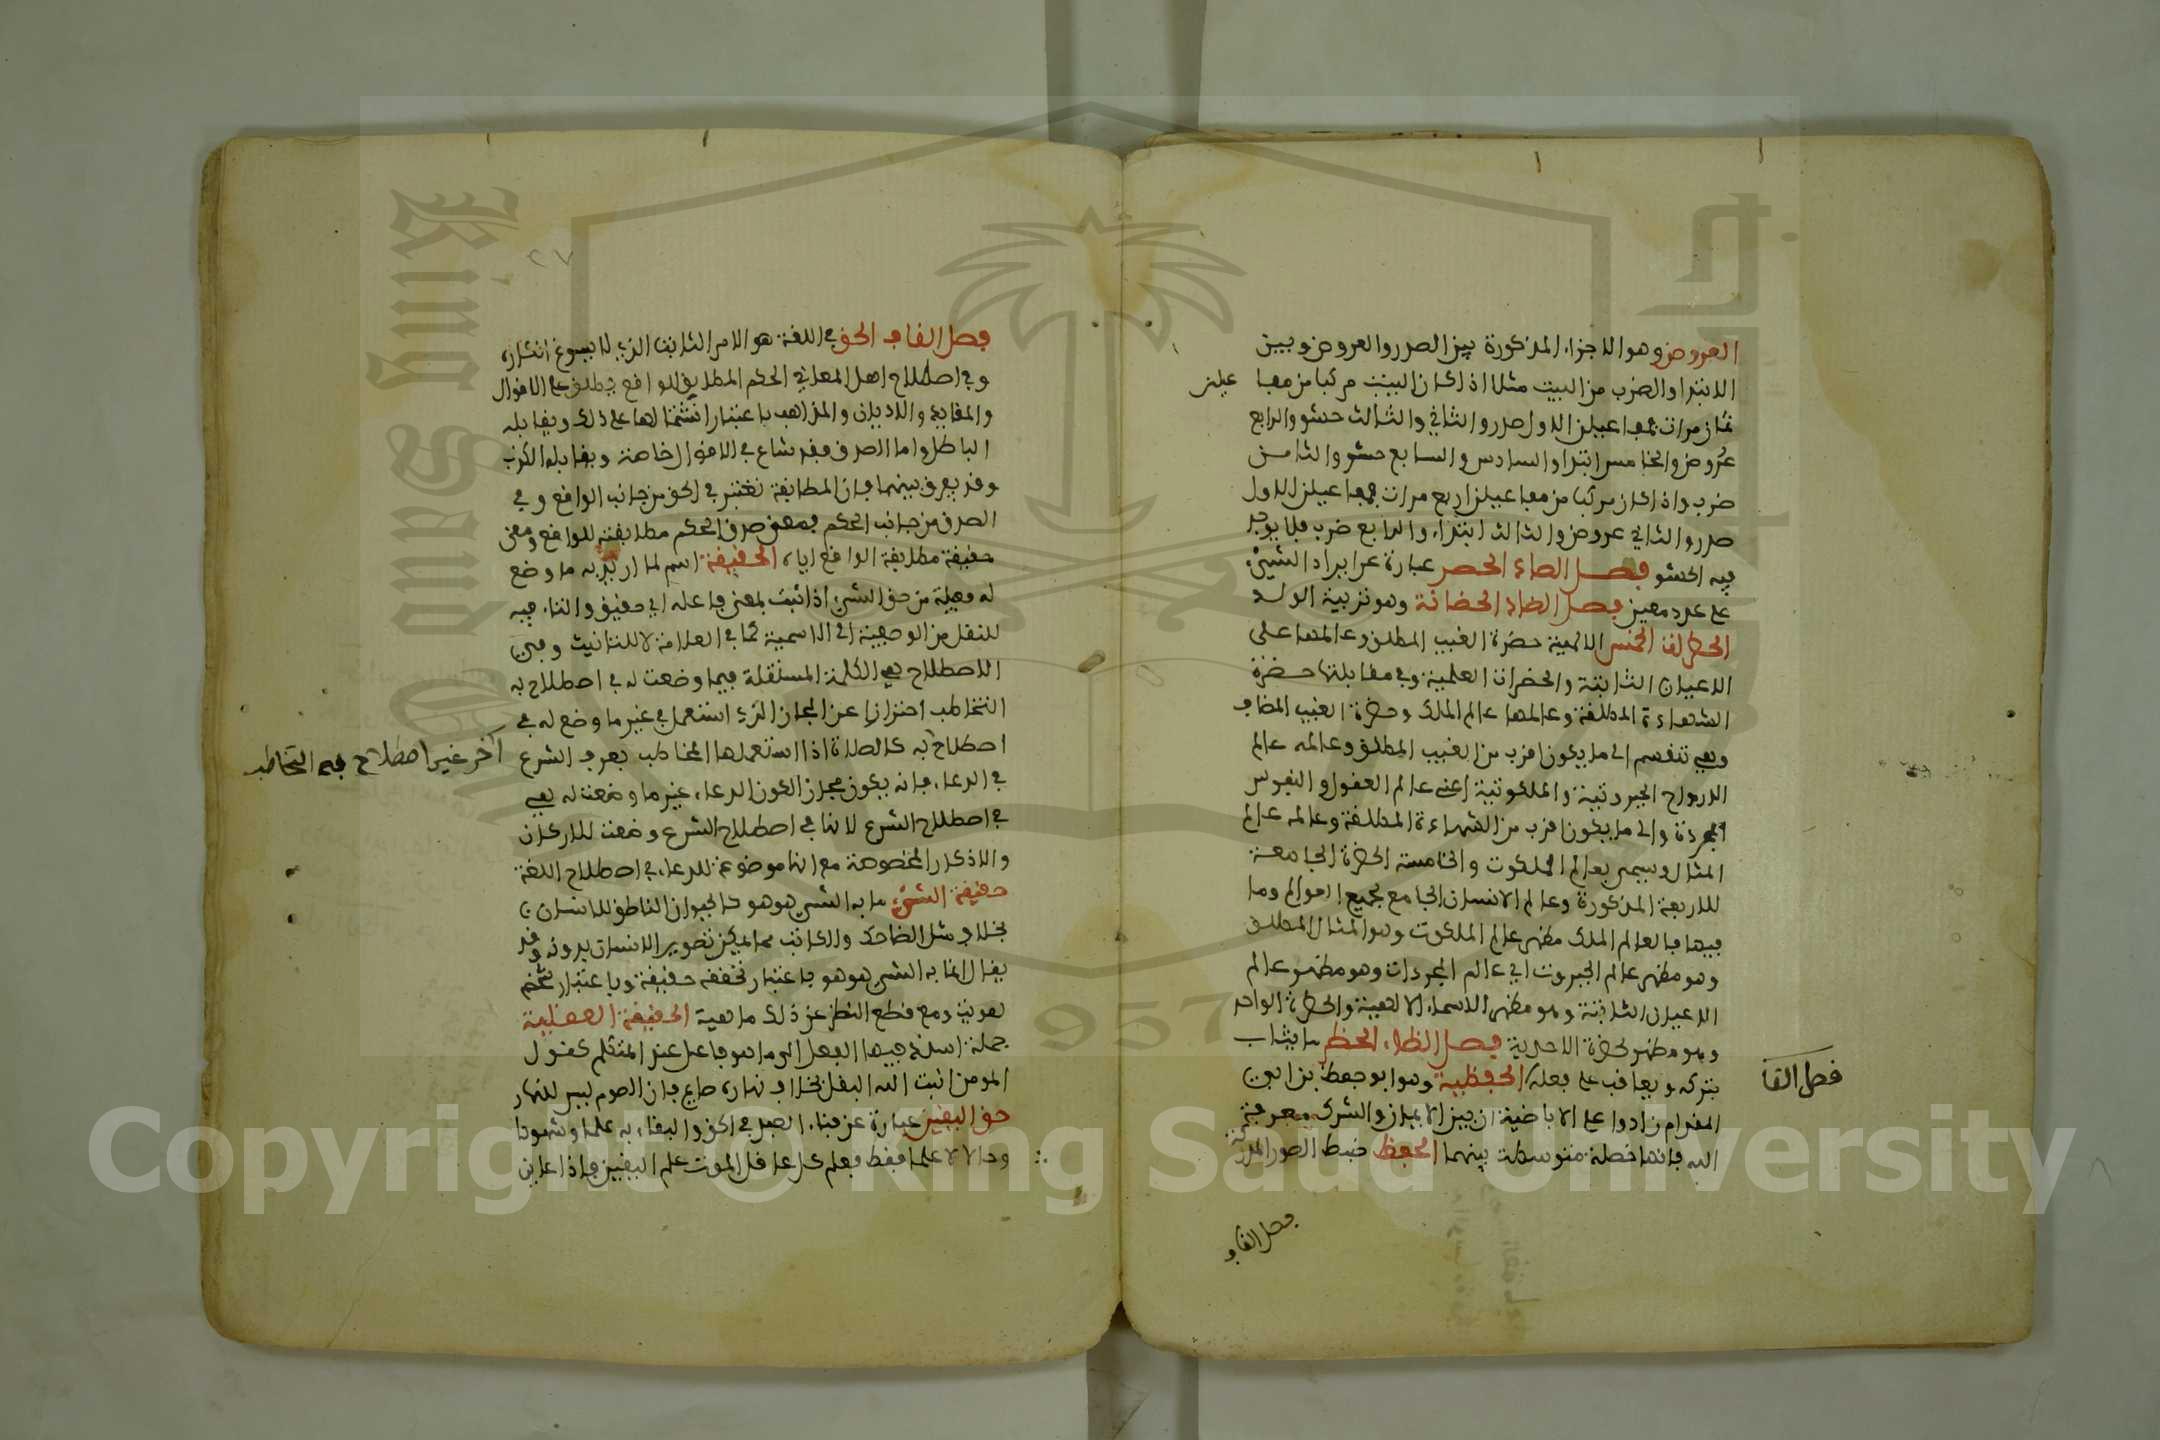 العروض وهو الاجزاء المذكورة بين الصدر والعروض وبين
الابتدا والضرب من البيت مثلا اذا كان البيت مركبا من مفا عيلن
ثمان مرات فمفاعيلن الاول صدر والثاني والثالث حشو والرابع
عروض والخامس ابتدا والسادس والسابع حشو والثامن
ضرب واذا كان مركبا من مفاعيلن اربع مرات فمفاعيلن الاول
صدر والثاني عروض والثالث ابتداء والرابع ضرب فلا يوجد
فيه الحشو فصل الصاد الحصر عبارة عن ايراد الشيئ
على عدد معين فصل الضاد الحضانة وهو تربية الولد
الحضرات الخمس الالهية حضرة الغيب المطلق وعالمها على
الاعيان الثابتة والحضرات العلمية وفي مقابلتها حضرة
الشهادة المطلقة وعالمها عالم الملك وحضرة الغيب المضاف
وهي تنقسم الى ما يكون اقرب من الغيب المطلق وعالمه عالم
الارواح الجبروتية والملكوتية اعني عالم العقول والنفوس
المجردة والى ما يكون اقرب من الشهادة المطلقة وعالمه عالم
المثال ويسمى بعالم الملكوت والخامسة الحضرة الجامعة
للاربعة المذكورة وعالم الانسان الجامع بجميع العوالم وما
فيها فالعالم الملك مظهر عالم الملكوت وهو المثال المطلق
وهو مظهر عالم الجبروت اي عالم المجردات وهو مظهر عالم
الاعيان الثابتة وهو مظهر الاسماء الالهية والحضرة الواحد
وهو مظهر لحضرة الاحدية فصل الظاء الحظر ما يثاب
بتركه ويعاقب على فعله الحفظية وهو ابو حفظ بن ابي
المقدام زادوا على الاباضية ان بين الايمان والشرك معرفة
الله فانها خصلة متوسطة بينهما الحفظ ضبط الصور المدركة
فصل القا
فصل القاف
٢٧
فصل القاف الحق في اللغة هو الامر الثابت الذي لا يسوغ انكاره
وفي اصطلاح اهل المعاني الحكم المطابق للواقع يطلق على الاقوال
والعقايد والاديان والمذاهب باعتبار اشتمالها على ذلك ويقابله
الباطل واما الصدق فقد شاع في الاقوال خاصة ويقابله الكذب
وقد يفرق بينهما فان المطابقة تعتبر في الحق من جانب الواقع وفي
الصدق من جانب الحكم فمعنى صدق الحكم مطابقته للواقع ومعنى
حقيقة مطابقة الواقع اياه الحقيقة اسم لما اريد به ما وضع
له فعيلة من حق الشي اذا ثبت بمعنى فاعله اي حقيق والتاء فيه
للنقل من الوصفية الى الاسمية كما في العلامة لا للتانيث وفي
الاصطلاح هي الكلمة المستقلة فيما وضعت له في اصطلاح به
التخاطب احترازا عن المجاز الذي استعمل في غير ما وضع له في
اصطلاح به كالصلاة اذا استعملها المخاطب بعرف الشرع
آخر غير اصطلاح فيه التخاطب
في الدعاء فانه يكون مجازا لكون الدعاء غير ما وضعت له هي
في اصطلاح الشرع لانها في اصطلاح الشرع وضعت للاركان
والاذكار المخصوصة مع انها موضوعة للدعاء في اصطلاح اللغة
حقيقة الشيئ ما به الشي هو هو كالحيوان الناطق للانسان
بخلاف مثل الضاحك والكاتب مما يمكن تصوير الانسان بدونه وقد
يقال ان ما به الشي هو هو باعتبار تحققه حقيقة وباعتبار تشخصه
هوية ومع قطع النظر عن ذلك ماهية الحقيقة العقلية
جملة اسند فيها الفعل الى ما هو فاعل عند المتكلم كقول
المومن انبت الله البقل بخلاف نهاره صايم فان الصوم ليس للنهار
حق اليقين عبارة عن فناء العبد في الحق والبقاء به علما وشهودا
وحالا لا علما فقط فعلم كل عاقل الموت علم اليقين فاذا عاين
Copyright © King Saud University
King Saud University
1957